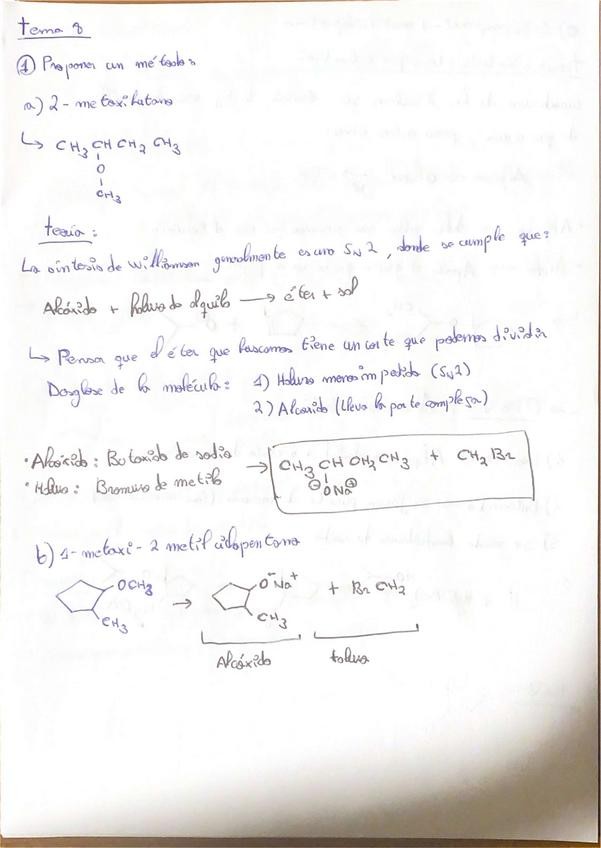 tema 8
① Proponer un método:
a) 2-metoxibutano
↳ CH3 CH CH2 CH3
O
CH3
teoría:
La síntesis de Williamson generalmente es una SN2, donde se cumple que:
Alcóxido + haluro de alquilo ⟶ éter + sal
↳ Pensar que el éter que buscamos tiene un corte que podemos dividir
Desglose de la molécula: 1) Haluro menos impedido (SN2)
2) Alcóxido (lleva la parte compleja)
• Alcóxido: Butóxido de sodio → CH3 CH CH2 CH3 + CH3 Br
⊖ONa⊕
• Haluro: Bromuro de metilo
b) 1-metoxi-2 metil ciclopentano
OCH3 → O⁻Na⁺ + Br CH3
CH3 CH3
Alcóxido haluro